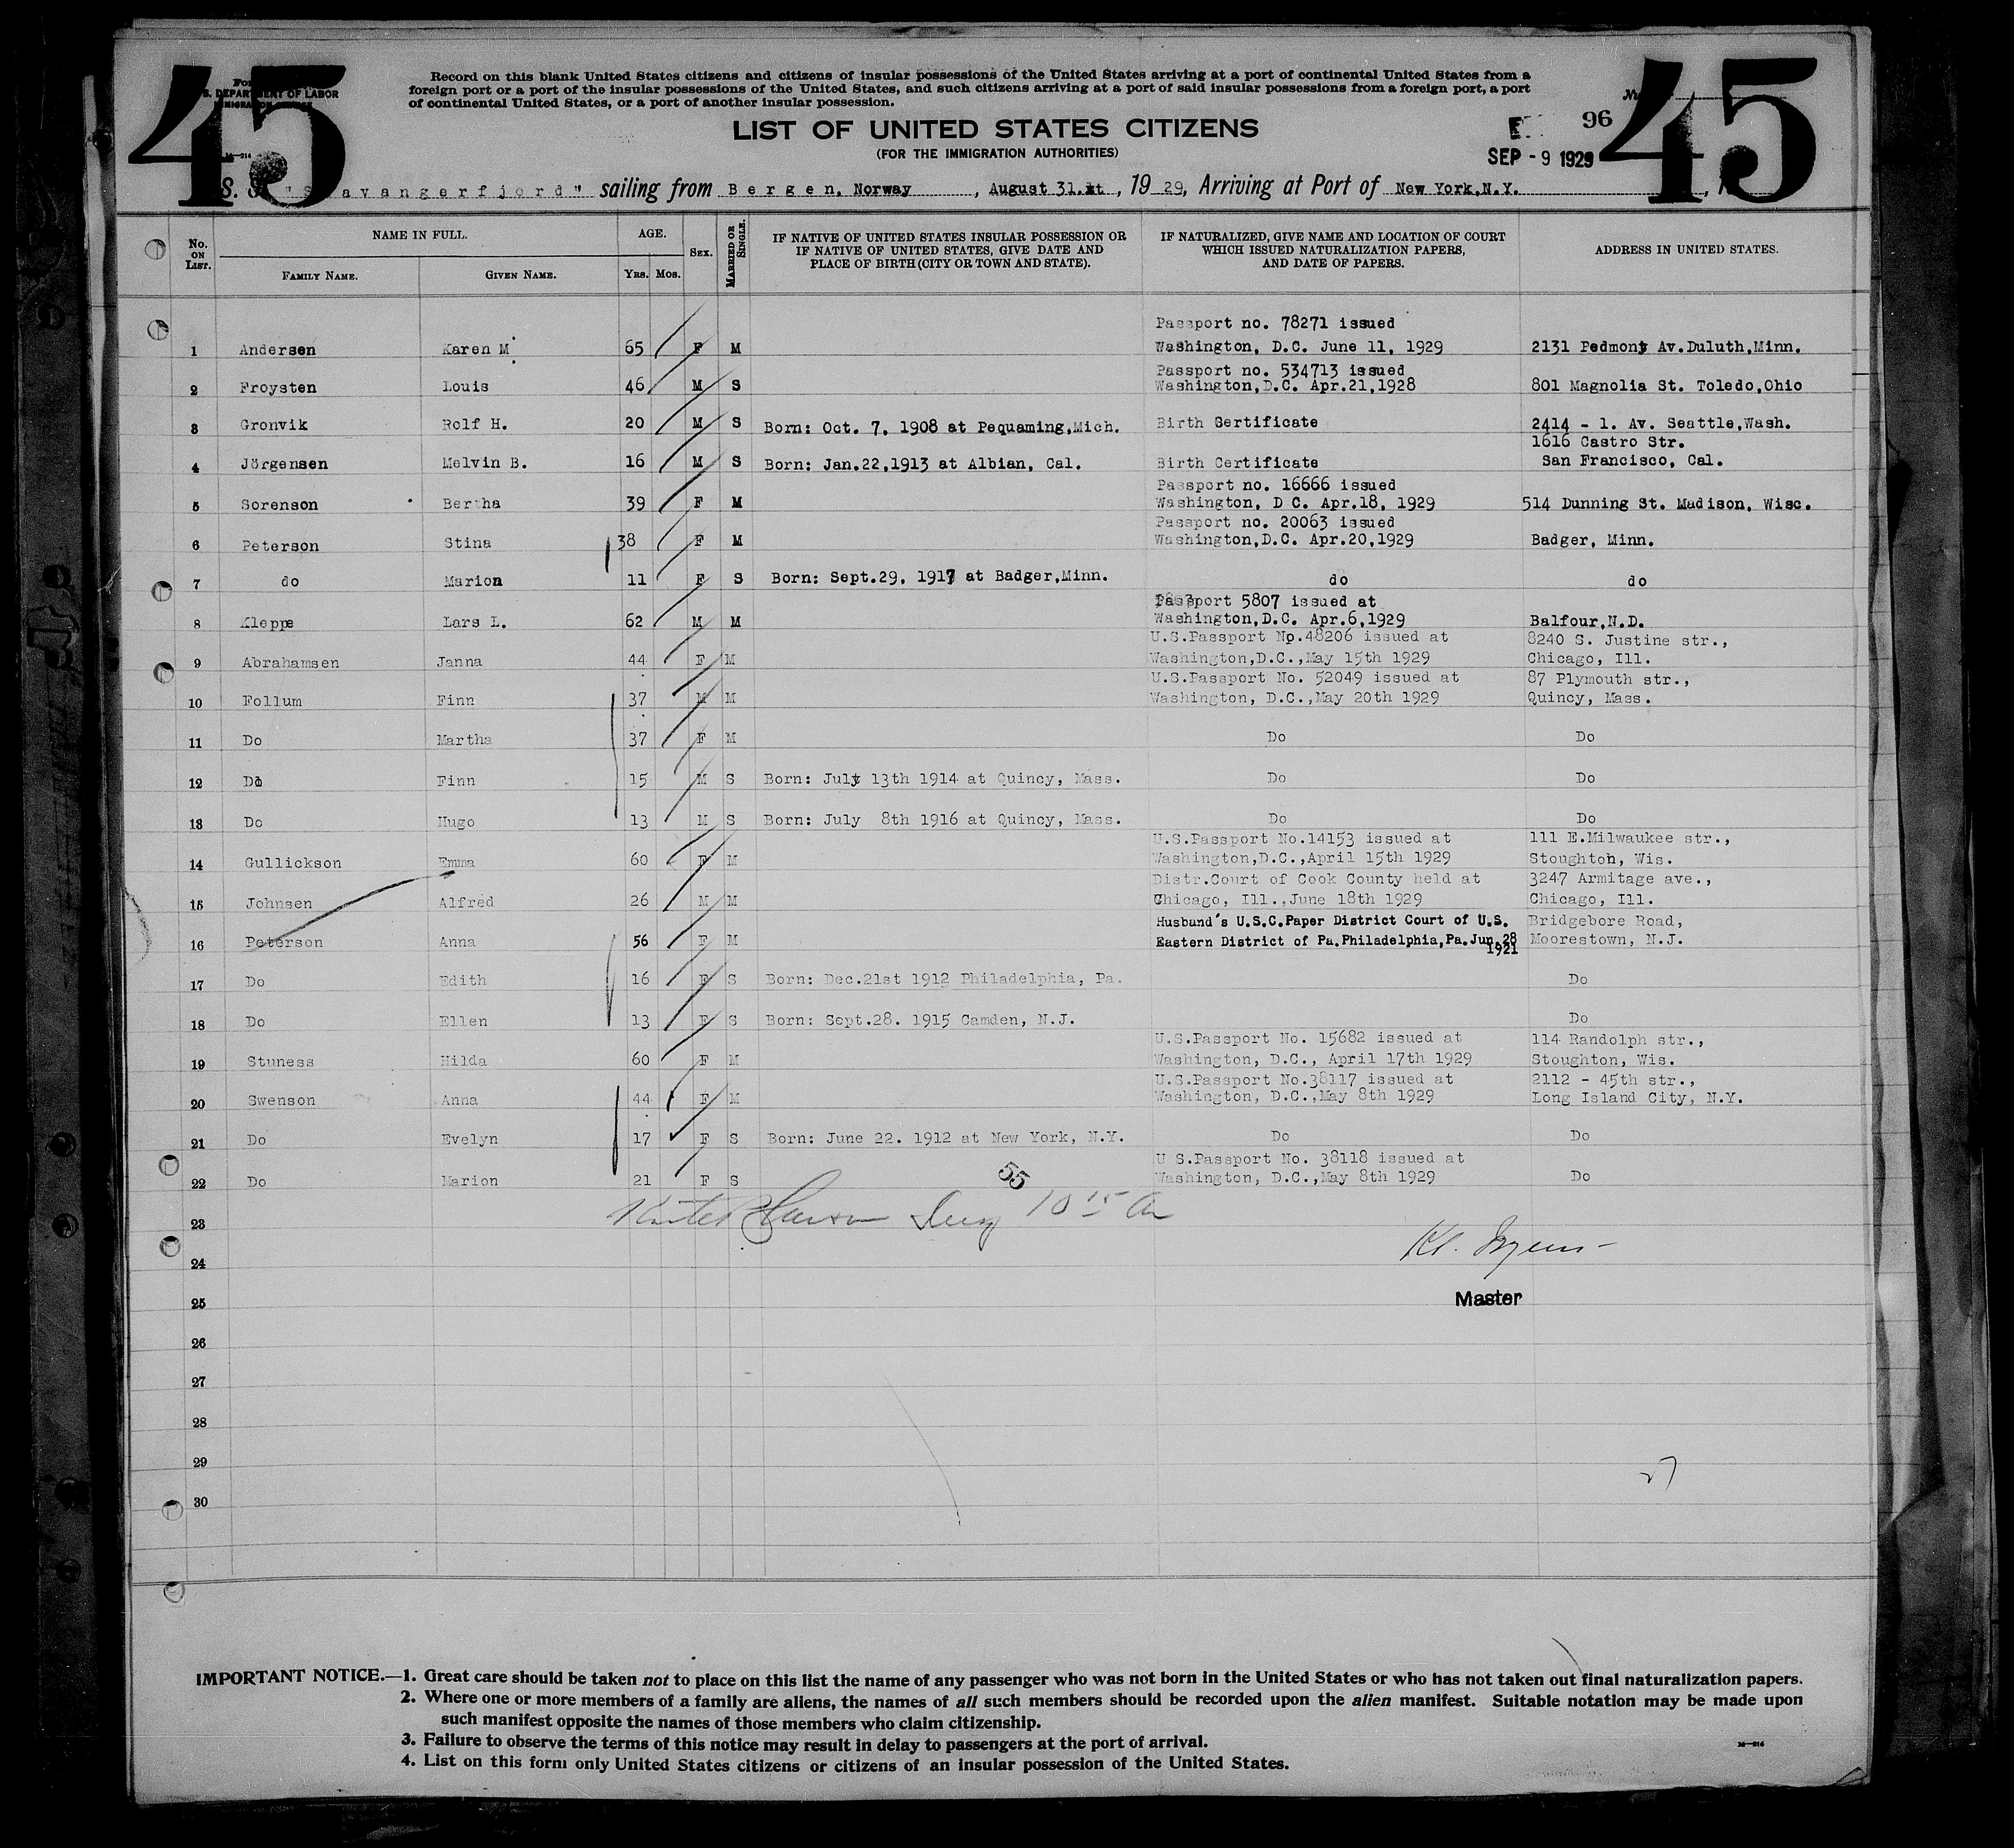 45
45
Record on this blank United States citizens and citizens of insular possessions of the United States arriving at a port of continental United States from a
foreign port or a port of the insular possessions of the United States, and such citizens arriving at a port of said insular possessions from a foreign port, a port
of continental United States, or a port of another insular possession.
LIST OF UNITED STATES CITIZENS
(FOR THE IMMIGRATION AUTHORITIES)
96
SEP - 9 1929
avangerfjord" sailing from Bergen, Norway, August 31., 1929, Arriving at Port of New York, N.Y.
No. ON LIST. NAME IN FULL. AGE. SEX. MARRIED OR SINGLE. IF NATIVE OF UNITED STATES INSULAR POSSESSION OR IF NATIVE OF UNITED STATES, GIVE DATE AND PLACE OF BIRTH (CITY OR TOWN AND STATE). IF NATURALIZED, GIVE NAME AND LOCATION OF COURT WHICH ISSUED NATURALIZATION PAPERS, AND DATE OF PAPERS. ADDRESS IN UNITED STATES.
FAMILY NAME. GIVEN NAME. YRS. MOS.
Passport no. 78271 issued
1 Andersen Karen M 65 F M Washington, D.C. June 11, 1929 2131 Pedmont Av.Duluth,Minn.
Passport no. 534713 issued
2 Froysten Louis 46 M S Washington,D.C. Apr.21,1928 801 Magnolia St. Toledo,Ohio
3 Gronvik Rolf H. 20 M S Born: Oct. 7, 1908 at Pequaming,Mich. Birth Sertificate 2414 - 1. Av. Seattle,Wash.
1616 Castro Str.
4 Jörgensen Melvin B. 16 M S Born: Jan.22,1913 at Albian, Cal. Birth Certificate San Francisco, Cal.
Passport no. 16666 issued
5 Sorenson Bertha 39 F M Washington, D C. Apr.18, 1929 514 Dunning St. Madison, Wisc.
Passport no. 20063 issued
6 Peterson Stina 38 F M Washington,D.C. Apr.20,1929 Badger, Minn.
7 do Marion 11 F S Born: Sept.29, 1917 at Badger,Minn. do do
Passport 5807 issued at
8 Kleppe Lars L. 62 M M Washington,D.C. Apr.6,1929 Balfour,N.D.
U.S.Passport No.48206 issued at 8240 S. Justine str.,
9 Abrahamsen Janna 44 F M Washington,D.C.,May 15th 1929 Chicago, Ill.
U.S.Passport No. 52049 issued at 87 Plymouth str.,
10 Follum Finn 37 M M Washington, D.C.,May 20th 1929 Quincy, Mass.
11 Do Martha 37 F M Do Do
12 Do Finn 15 M S Born: July 13th 1914 at Quincy, Mass. Do Do
13 Do Hugo 13 M S Born: July 8th 1916 at Quincy, Mass. Do Do
U.S.Passport No.14153 issued at 111 E.Milwaukee str.,
14 Gullickson Emma 60 F M Washington,D.C.,April 15th 1929 Stoughton, Wis.
Distr.Court of Cook County held at 3247 Armitage ave.,
15 Johnsen Alfred 26 M M Chicago, Ill.,June 18th 1929 Chicago, Ill.
Husband's U.S.C.Paper District Court of U.S. Bridgebore Road,
16 Peterson Anna 56 F M Eastern District of Pa.Philadelphia,Pa.Jun.28 1921 Moorestown, N.J.
17 Do Edith 16 F S Born: Dec.21st 1912 Philadelphia, Pa. Do
18 Do Ellen 13 F S Born: Sept.28. 1915 Camden, N.J. Do
U.S.Passport No. 15682 issued at 114 Randolph str.,
19 Stuness Hilda 60 F M Washington, D.C., April 17th 1929 Stoughton, Wis.
U.S.Passport No.38117 issued at 2112 - 45th str.,
20 Swenson Anna 44 F M Washington, D.C.,May 8th 1929 Long Island City, N.Y.
21 Do Evelyn 17 F S Born: June 22. 1912 at New York, N.Y. Do Do
U S.Passport No. 38118 issued at
22 Do Marion 21 F S Washington, D.C.,May 8th 1929 Do
55
23
24
25 Master
26
27
28
29
27
30
IMPORTANT NOTICE.—1. Great care should be taken not to place on this list the name of any passenger who was not born in the United States or who has not taken out final naturalization papers.
2. Where one or more members of a family are aliens, the names of all such members should be recorded upon the alien manifest. Suitable notation may be made upon
such manifest opposite the names of those members who claim citizenship.
3. Failure to observe the terms of this notice may result in delay to passengers at the port of arrival.
4. List on this form only United States citizens or citizens of an insular possession of the United States.